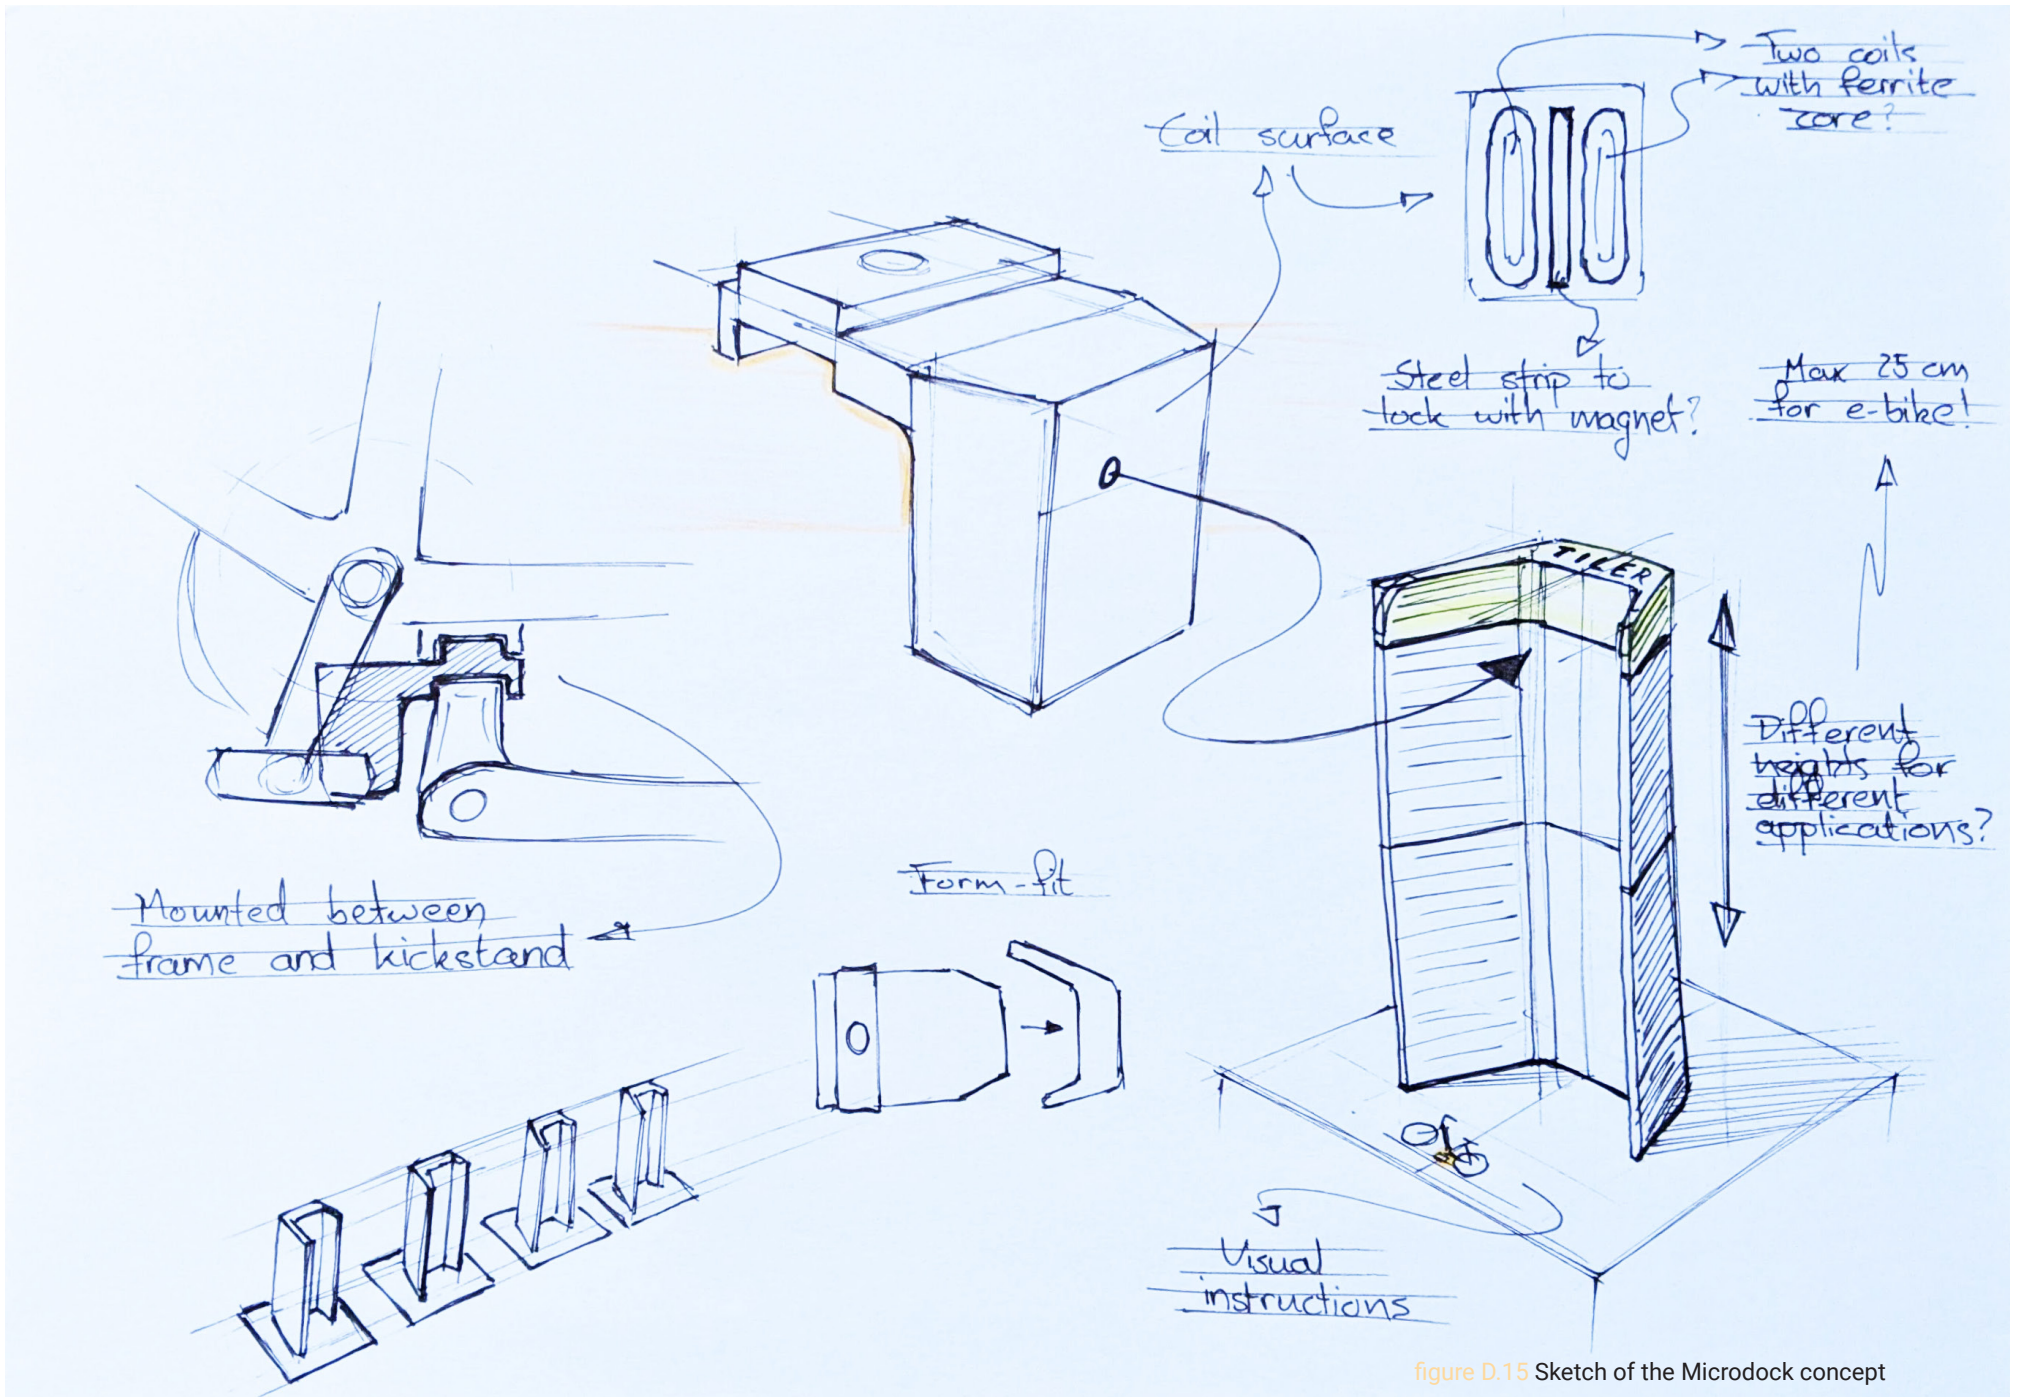 Two coils
with ferrite
core?
Coil surface
Steel strip to
lock with magnet?
Max 25 cm
for e-bike!
TILER
Different
heights for
different
applications?
Mounted between
frame and kickstand
Form-fit
Visual
instructions
figure D.15 Sketch of the Microdock concept